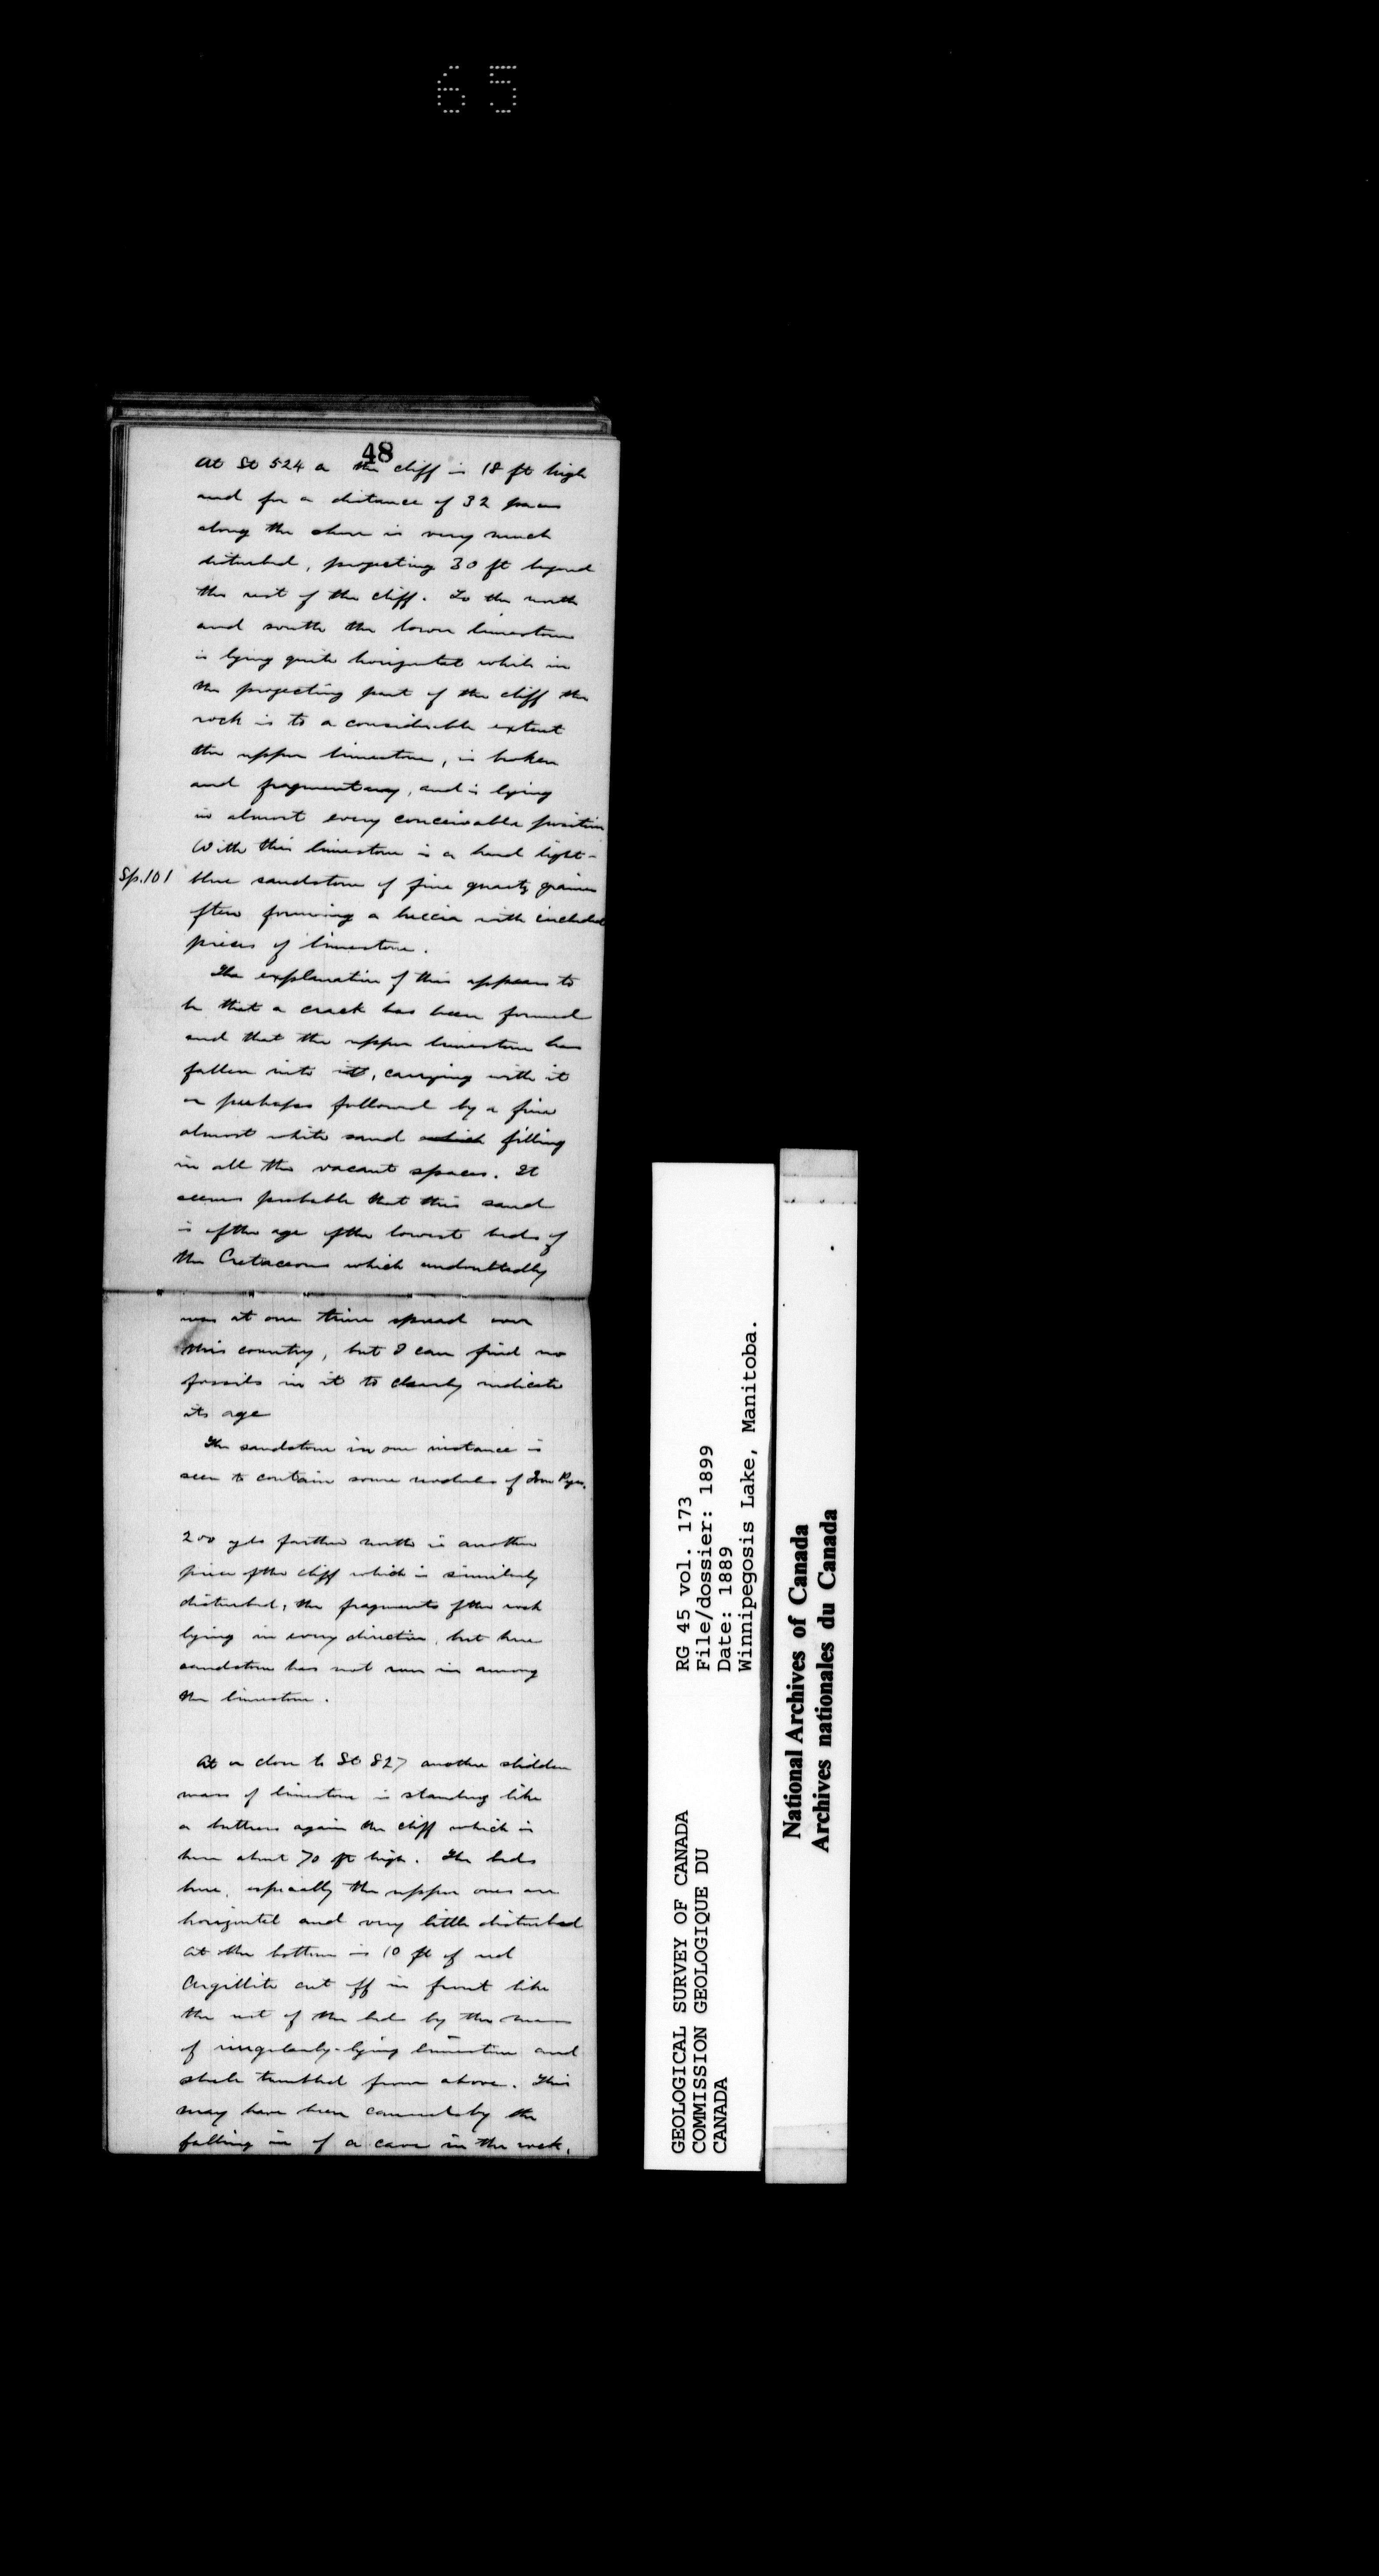 65
48
At St 524 a the cliff is 18 ft high
and for a distance of 32 paces
along the shore is very much
disturbed, projecting 30 ft beyond
the rest of the cliff. To the north
and south the lower limestone
is lying quite horizontal while in
the projecting part of the cliff the
rock is to a considerable extent
the upper limestone, is broken
and fragmentary, and is lying
in almost every conceivable position
With this limestone is a hard light-
Sp. 101 blue sandstone of fine quartz grains
often forming a breccia with included
pieces of limestone.
The explanation of this appears to
be that a crack has been formed
and that the upper limestone has
fallen into it, carrying with it
or perhaps followed by a fine
almost white sand which filling
in all the vacant spaces. It
seems probable that this sand
is of the age of the lowest beds of
the Cretaceous which undoubtedly
was at one time spread over
this country, but I can find no
fossils in it to clearly indicate
its age
The sandstone in one instance is
seen to contain some nodules of Iron Pyr.
200 yds farther north is another
piece of the cliff which is similarly
disturbed, the fragments of the rock
lying in every direction, but here
sandstone has not run in among
the limestone.
At or close to St 827 another slidden
mass of limestone is standing like
a buttress again the cliff which is
here about 70 ft high. The beds
here, especially the upper ones are
horizontal and very little disturbed
At the bottom is 10 ft of red
Argillite cut off in front like
the rest of the bed by the mass
of irregularly-lying limestone and
shale tumbled from above. This
may have been caused by the
falling in of a cave in the rock.
GEOLOGICAL SURVEY OF CANADA
COMMISSION GEOLOGIQUE DU
CANADA
RG 45 vol. 173
File/dossier: 1899
Date: 1889
Winnipegosis Lake, Manitoba.
National Archives of Canada
Archives nationales du Canada